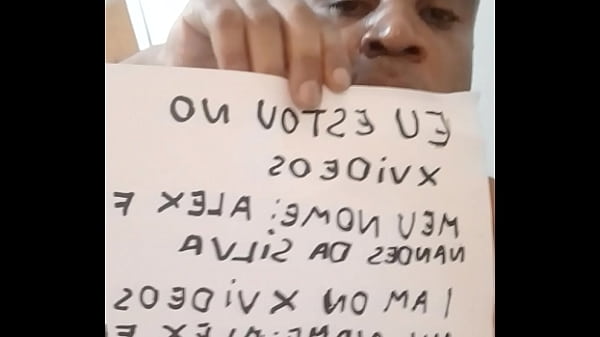 EU ESTOU NO
XViDEOS
MEU NOME: ALEX F
NANDES DA SiLVA
I AM ON XViDEOS
MY NAME: ALEX F